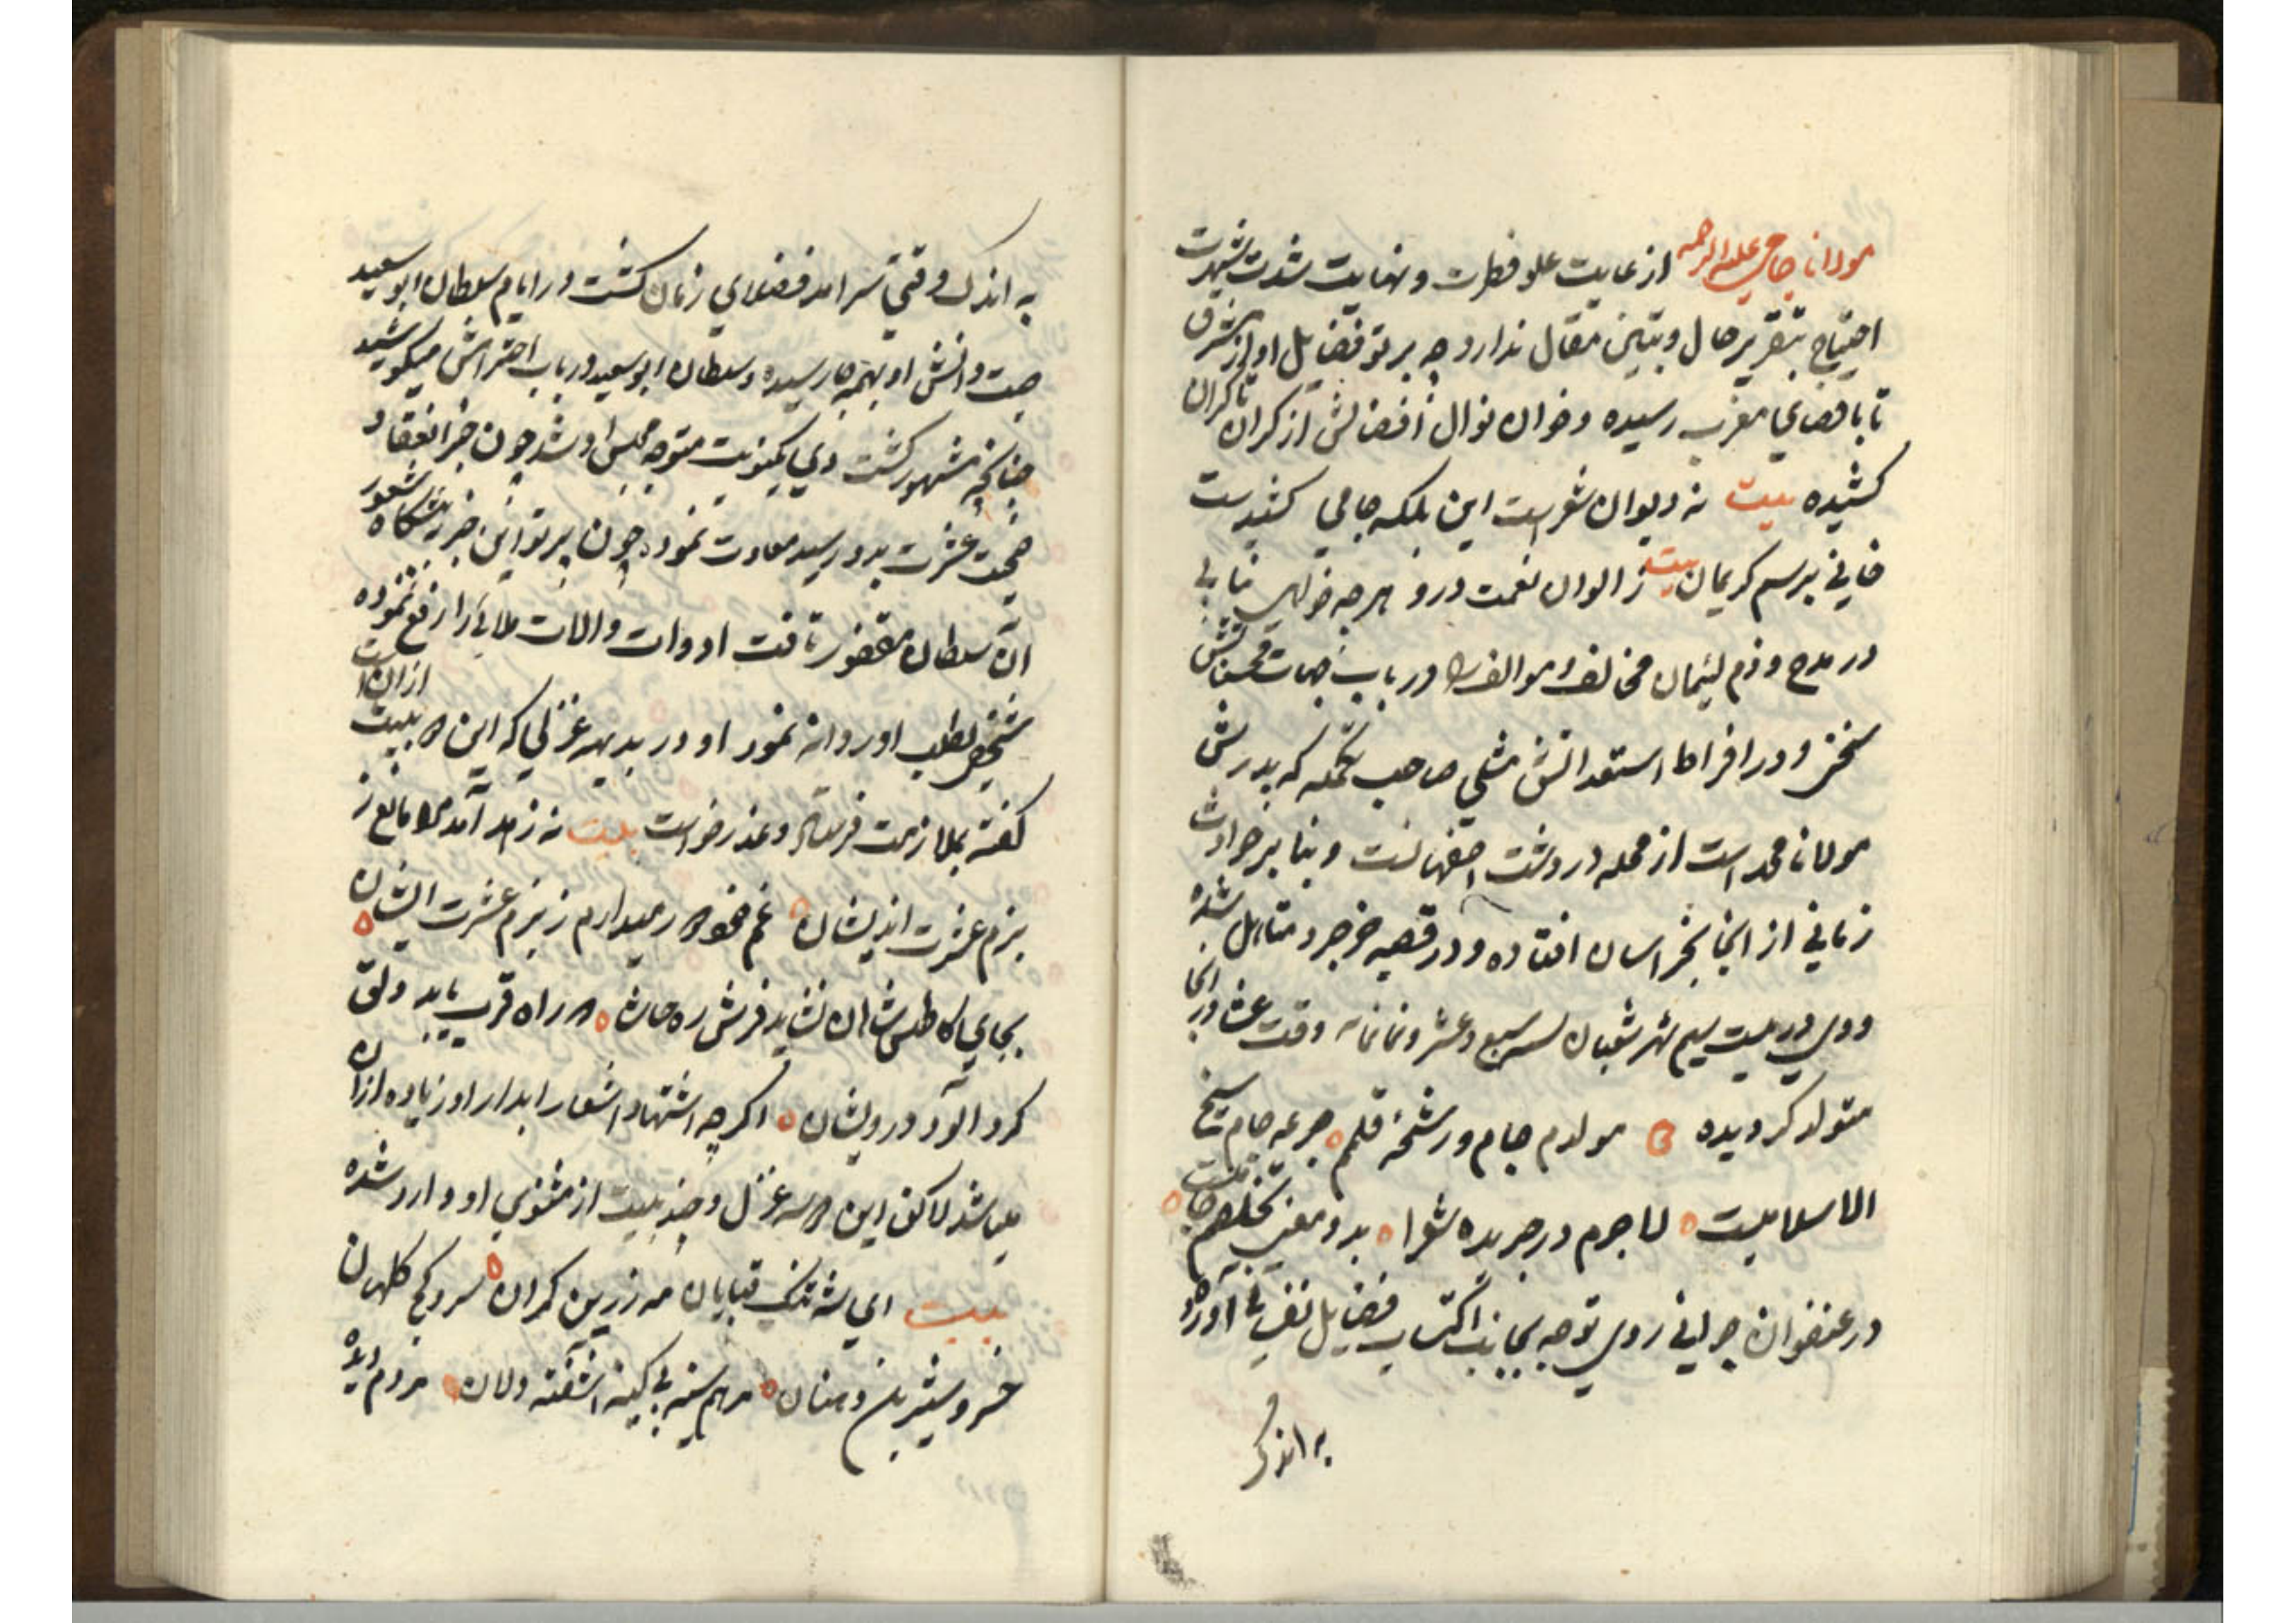 مولانا جامی علیه الرحمه از غایت علو فطرت و نهایت شدت شهرت
احتیاج بتقریر حال و تبیین مقال ندارد چه پرتو فضایل او از شرق
تا باقصای مغرب رسیده و خوان نوال افضالش از کران تا کران
کشیده بیت نه دیوان شعرست این بلکه جامی کشیدست
خوانی برسم کریمان بیت ز الوان نعمت درو هر چه خواهی بیابی
در مدح و ذم لئیمان مخالف و موالف را در باب
سخن و در افراط استعدادش مثلی صاحب تکمله که پدرش
مولانا محمد است از محله دردشت اصفهانست و بنا بر حوادث
زمانی از انجا بخراسان افتاده و در قصبه خرجرد متاهل شده
و وی در بیست سیم شهر شعبان سنه سبع و عشر و ثمانمائه وقت عشا در انجا
متولد کردیده مولدم جام و رشحۀ قلمم جرعه جام شیخ
الاسلامیست لاجرم در جریده شعرا بدو معنی تخلصم جامیست
در عنفوان جوانی روی توجه بجانب اکتساب فضایل نفسانی آورده
به اندک
به اندک وقتی سرامد فضلای زمان کشت در ایام سلطان ابو سعید
صیت دانش او بهمه جا رسیده و سلطان ابو سعید در باب احترامش میکوشید
چنانچه مشهور کشت وی یکنوبت متوجه مجلس او شد چون خبر انعقاد
صحبت عشرت بدو رسید معاودت نمود چون پرتو این خبر بپیشکاه شعور
آن سلطان مغفور تافت ادوات و الات ملاهی را رفع نموده
شخصی بطلب او روانه نمود او در بدیهه غزلی که این بیت از ان است
کفته بملازمت فرستاد و عذر خواست بیت نه زهد آمد مرا مانع ز
بزم عشرت اندیشان غم خود دور میدارم ز بزم عشرت ایشان
بجایی کاطلس شاهان نشاید فرش ره حاشا که راه قرب یابد دلق
کرد آلود درویشان اکرچه اشتهار اشعار ابدار او زیاده از ان
میباشد لاکن این سه غزل و چند بیت از مثنوی او وارد شده
بیت ای شه تنک قبایان مه زرین کمران سرو کج کلهان
خسرو شیرین دهنان مرهم سینه بی کینه اشفته دلان مردم دیده